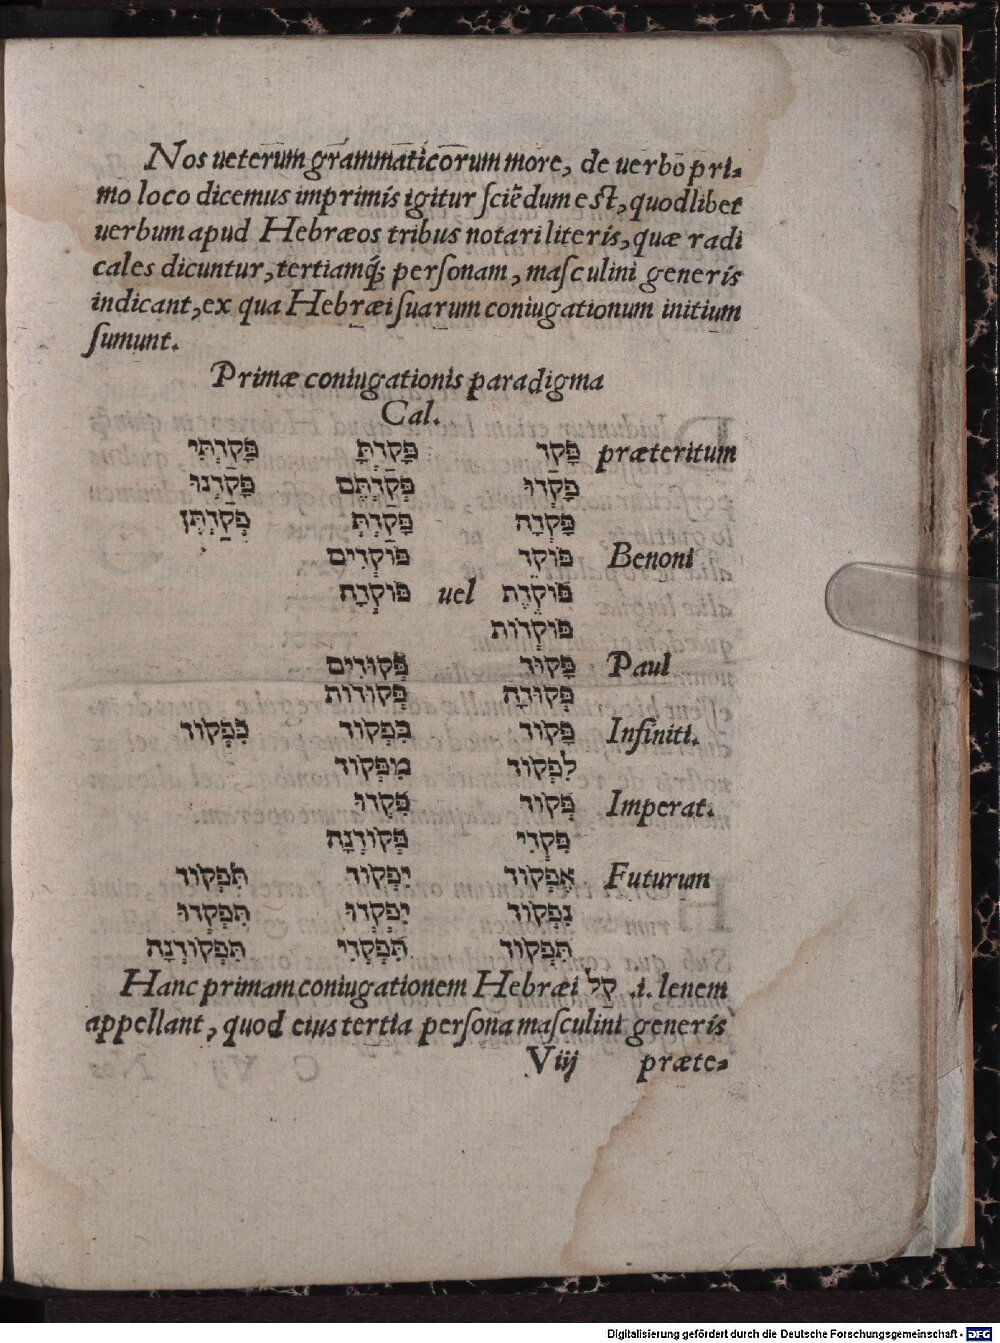 Nos ueterum grammaticorum more, de uerbo pri-
mo loco dicemus imprimis igitur sciẽdum est, quodlibet
uerbum apud Hebræos tribus notari literis, quæ radi
cales dicuntur, tertiamq́; personam, masculini generis
indicant, ex qua Hebræi suarum coniugationum initium
sumunt.
Primæ coniugationis paradigma
Cal.
præteritum פָּקַד פָּקַדְתָּ פָּקַדְתִּי
פָּקְדוּ פְּקַדְתֶּם פָּקַדְנוּ
פָּקְדָה פָּקַדְתְּ פְּקַדְתֶּן
Benoni פּוֹקֵד פּוֹקְדִים
פּוֹקֶדֶת uel פּוֹקְדָה
פּוֹקְדוֹת
Paul פָּקוּד פְּקוּדִים
פְּקוּדָה פְּקוּדוֹת
Infiniti. פָּקוֹד בִּפְקוֹד כִּפְקוֹד
לִפְקוֹד מִפְּקוֹד
Imperat. פְּקוֹד פִּקְדוּ
פִּקְדִי פְּקוֹדְנָה
Futurum אֶפְקוֹד יִפְקוֹד תִּפְקוֹד
נִפְקוֹד יִפְקְדוּ תִּפְקְדוּ
תִּפְקוֹד תִּפְקְדִי תִּפְקוֹדְנָה
Hanc primam coniugationem Hebræi קַל .i. lenem
appellant, quod eius tertia persona masculini generis
Viij præte-
Digitalisierung gefördert durch die Deutsche Forschungsgemeinschaft - DFG